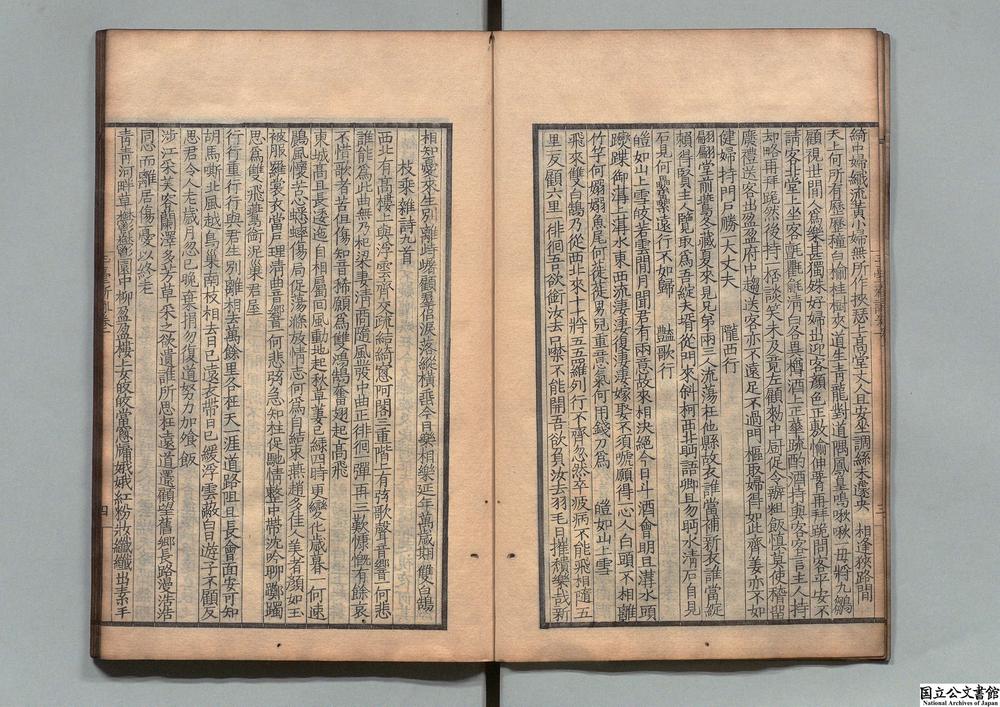 綺中婦織流黃小婦無所作挾瑟上高堂丈人且安坐調絲未遽央　相逢狹路間
天上何所有歷歷種白榆桂樹夾道生青龍對道隅鳳皇鳴啾啾一母將九鶵
顧視世間人為樂甚獨殊好婦出迎客顏色正敷愉伸腰再拜跪問客平安不
請客北堂上坐客氊氍毹清白各異樽酒上正華疏酌酒持與客客言主人持
却略再拜跪然後持一桮談笑未及竟左顧勑中厨促令辦麤飯慎莫使稽留
廢禮送客出盈盈府中趨送客亦不遠足不過門樞取婦得如此齊姜亦不如
健婦持門戶勝一大丈夫　隴西行
翩翩堂前鷰冬藏夏來見兄弟兩三人流蕩在他縣故衣誰當補新衣誰當綻
賴得賢主人覽取為吾綻夫壻從門來斜柯西北眄語卿且勿眄水清石自見
石見何纍纍遠行不如歸　豔歌行
皚如山上雪皎若雲間月聞君有兩意故來相決絕今日斗酒會明旦溝水頭
蹀躞御溝上溝水東西流淒淒復淒淒嫁娶不須啼願得一心人白頭不相離
竹竿何嫋嫋魚尾何簁簁男兒重意氣何用錢刀為　皚如山上雪
飛來雙白鵠乃從西北來十十將五五羅列行不齊忽然卒疲病不能飛相隨五
里一反顧六里一徘徊吾欲銜汝去口噤不能開吾欲負汝去羽毛日摧積樂哉新
相知憂來生別離峙䠧顧群侶淚落縱橫垂今日樂相樂延年萬歲期　雙白鵠
枚乘雜詩九首
西北有高樓上與浮雲齊交疏結綺窗阿閣三重階上有弦歌聲音響一何悲
誰能為此曲無乃杞梁妻清商隨風發中曲正徘徊一彈再三歎慷慨有餘哀
不惜歌者苦但傷知音稀願為雙鴻鵠奮翅起高飛
東城高且長逶迤自相屬回風動地起秋草萋已綠四時更變化歲暮一何速
鷐風懷苦心蟋蟀傷局促蕩滌放情志何為自結束燕趙多佳人美者顏如玉
被服羅裳衣當戶理清曲音響一何悲弦急知柱促馳情整中帶沈吟聊躑躅
思為雙飛鷰銜泥巢君屋
行行重行行與君生別離相去萬餘里各在天一涯道路阻且長會面安可知
胡馬嘶北風越鳥巢南枝相去日已遠衣帶日已緩浮雲蔽白日遊子不顧反
思君令人老歲月忽已晚棄捐勿復道努力加餐飯
涉江采芙蓉蘭澤多芳草采之欲遺誰所思在遠道還顧望舊鄉長路漫浩浩
同心而離居傷憂以終老
青青河畔草鬱鬱園中柳盈盈樓上女皎皎當窻牖娥娥紅粉妝纖纖出素手
四
国立公文書館
National Archives of Japan